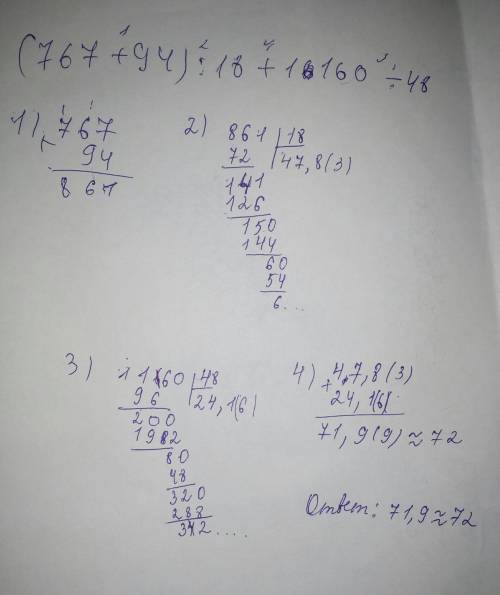 (767 + 94) : 18 + 1160 ÷ 48
1 2 4 3
1) 767
+ 94
861
2) 861 | 18
72 47,8(3)
141
126
150
144
60
54
6...
3) 1160 | 48
96 24,1(6)
200
192
80
48
320
288
32....
4) 47,8(3)
+ 24,1(6)
71,9(9) ≈ 72
Ответ: 71,9 ≈ 72